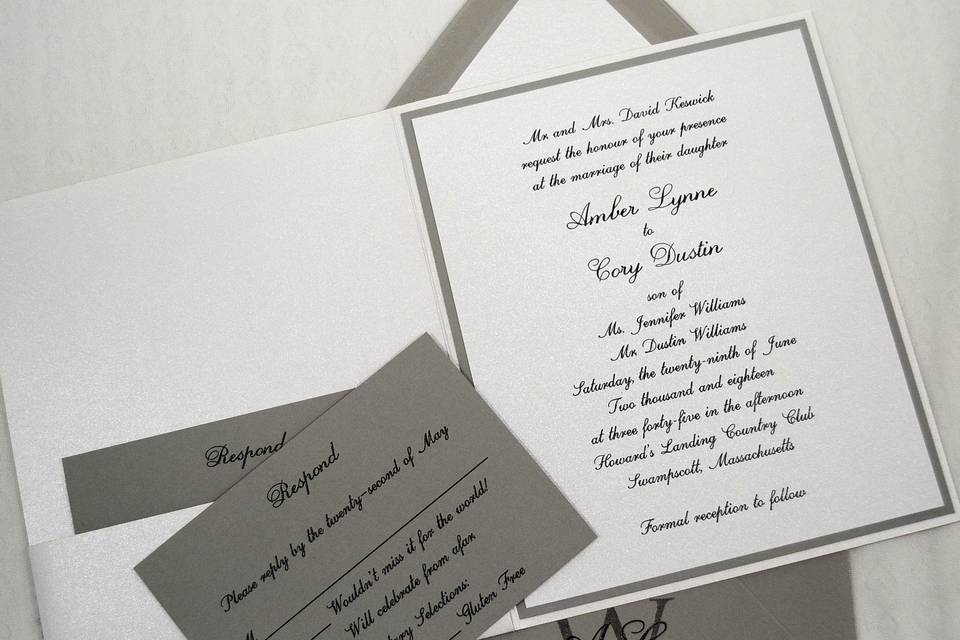 Mr. and Mrs. David Keswick
request the honour of your presence
at the marriage of their daughter
Amber Lynne
to
Cory Dustin
son of
Ms. Jennifer Williams
Mr. Dustin Williams
Saturday, the twenty-ninth of June
Two thousand and eighteen
at three forty-five in the afternoon
Howard's Landing Country Club
Swampscott, Massachusetts
Formal reception to follow
Respond
Respond
Please reply by the twenty-second of May
M
Wouldn't miss it for the world!
Will celebrate from afar
Selections:
Gluten Free
W